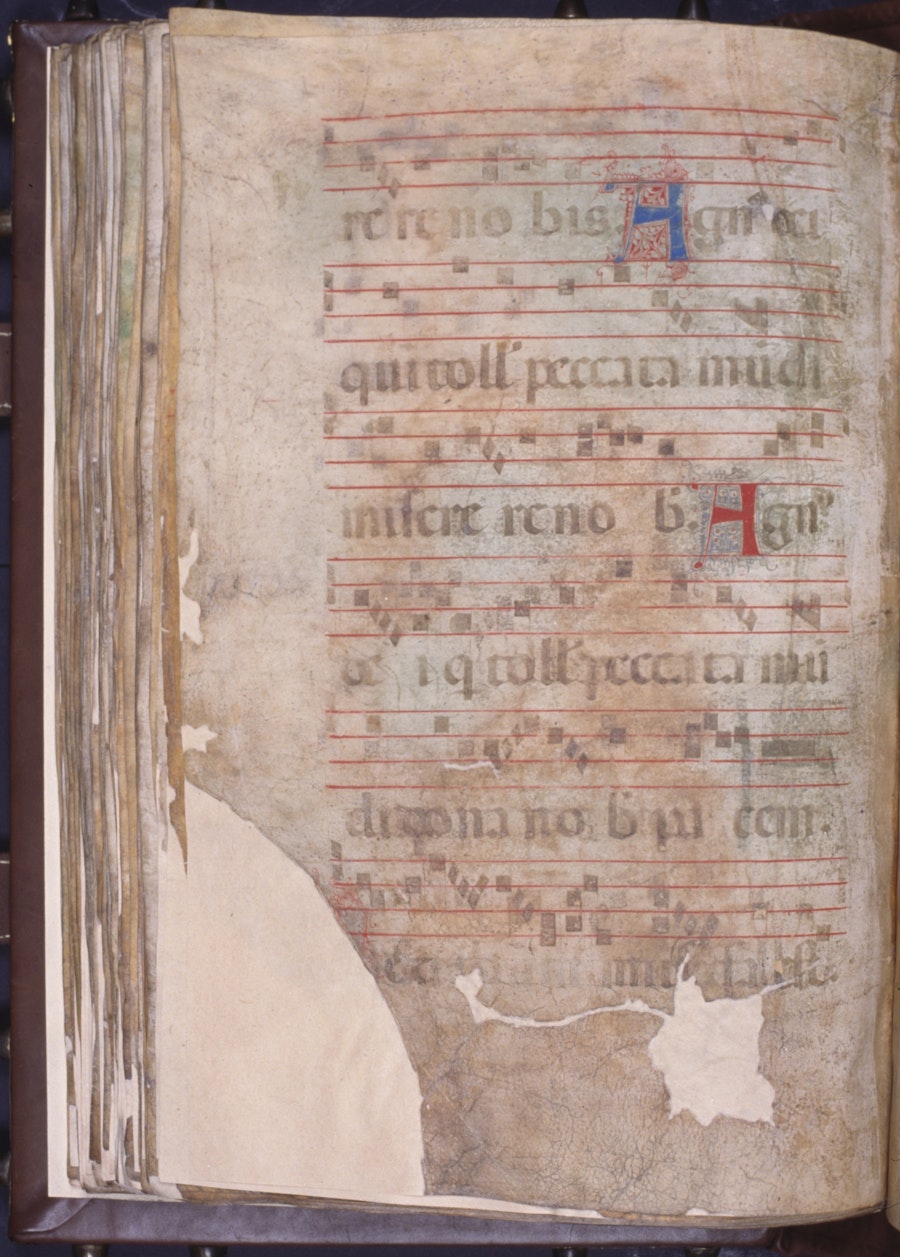 re re no bis. Agn' dei
qui toll' peccata mūdi
misere re no b. Agn'
de i q toll' peccata mū
di dona no b' pa cem.